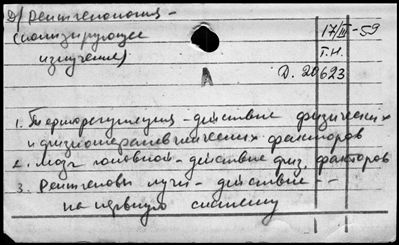 д) Рентгенология -
(ионизирующее
излучение)
17/III-59
Т.Н.
A
Д. 20623
1. Терморегуляция - действие физических
и физиотерапевтических факторов
2. Мозг головной - действие физ. факторов
3. Рентгеновы лучи - действие --
на нервную систему